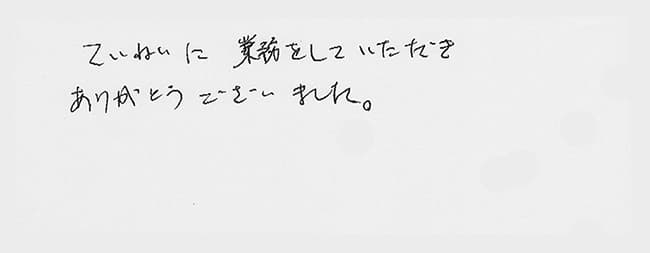 ていねいに 業務をしていただき
ありがとうございました。